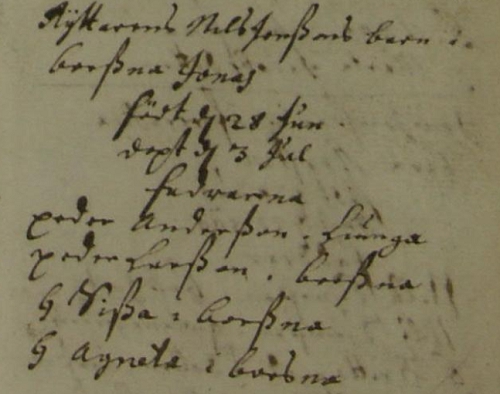 Ryttarens Nils Jonßons barn i
borßna Jonas
födt d 28 Jun
döpt d 3 Jul
fadrarna
peder Anderßon i Liunga
peder Larßon i borßna
H Sißa i borßna
H Agneta i borsna